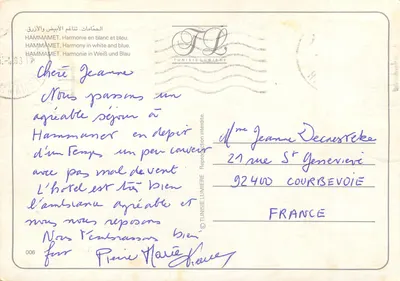 الحمامات. تناغم الأبيض والأزرق
HAMMAMET. Harmonie en blanc et bleu.
HAMMAMET. Harmony in white and blue.
HAMMAMET. Harmonie in Weiß und Blau
TL
TUNISIE LUMIERE
Chère Jeanne
Nous passons un
agréable séjour à
Hammamet en dépit
d'un temps un peu couvert
avec pas mal de vent
L'hôtel est très bien
l'ambiance agréable et
nous nous reposons
Nous t'embrassons bien
fort Pierre Marie
Mme Jeanne
21 rue St Geneviève
92400 COURBEVOIE
FRANCE
© TUNISIE LUMIERE - Reproduction interdite
008